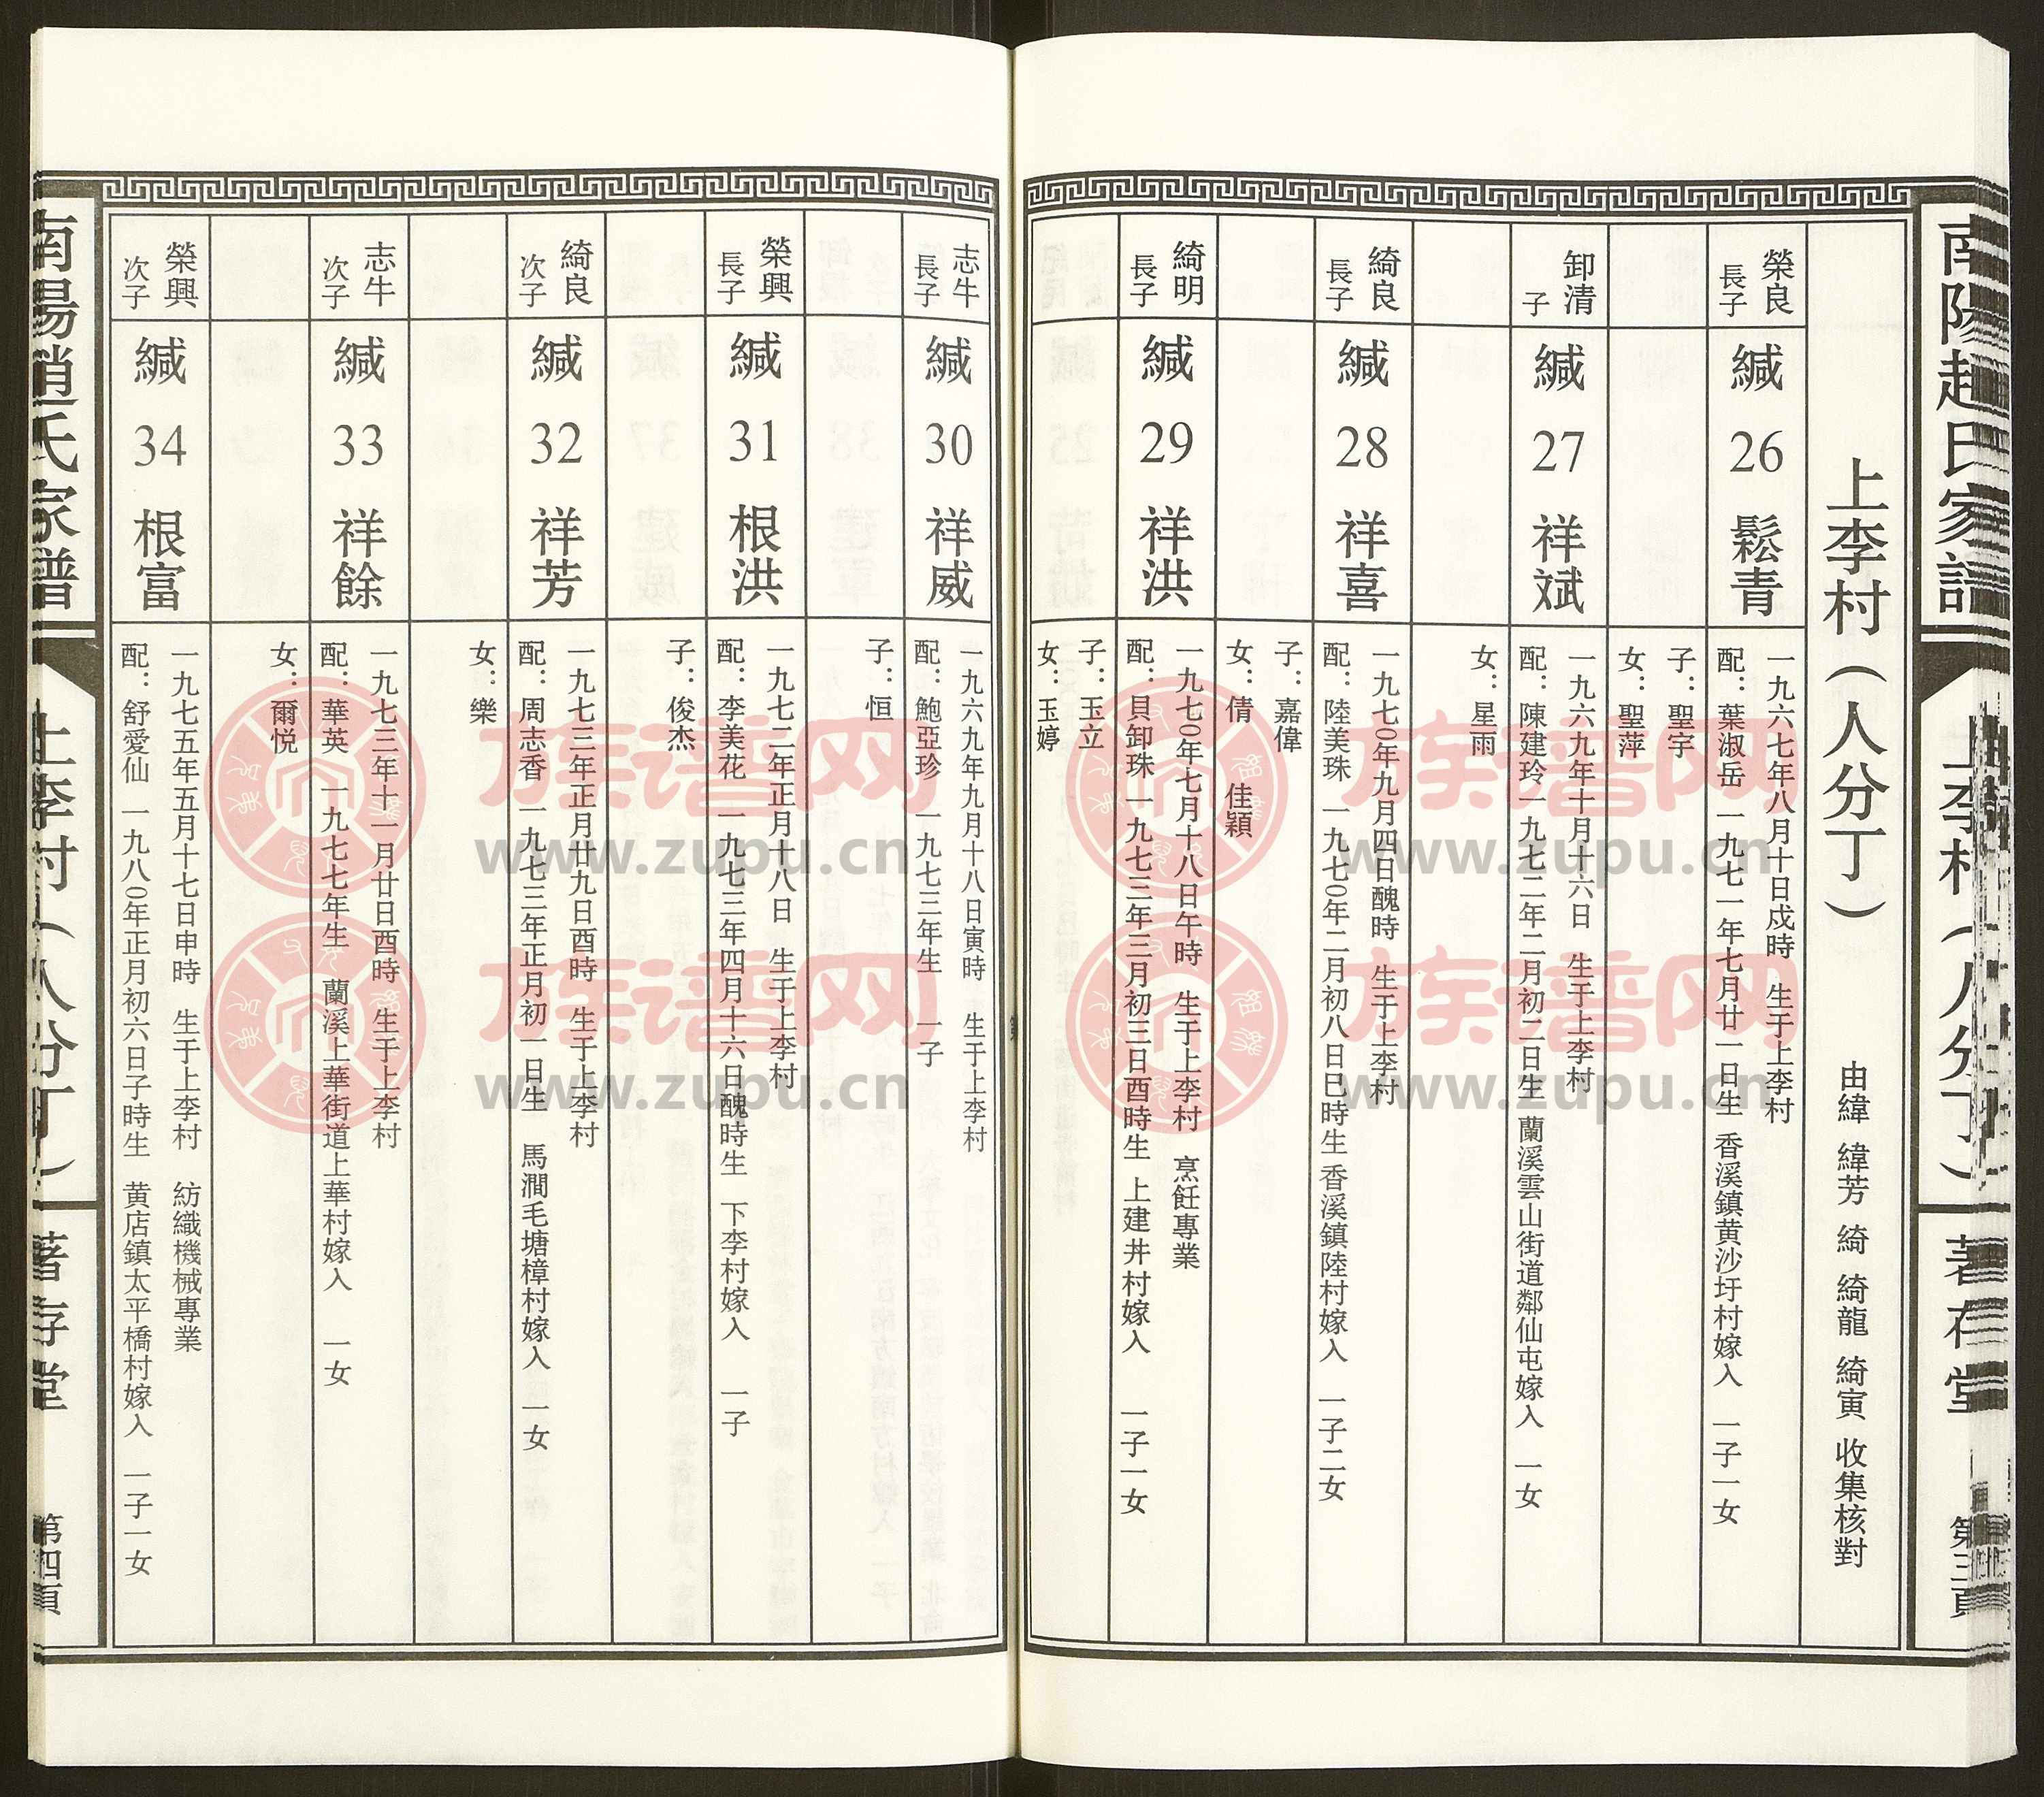 南陽趙氏家譜
上李村（人分丁）
著存堂
第三頁
上李村（人分丁）
由緯 緯芳 綺 綺龍 綺寅 收集核對
榮良
長子
緘
26
鬆青
一九六七年八月十日戌時 生于上李村
配：葉淑岳 一九七一年七月廿一日生 香溪鎮黄沙圩村嫁入 一子一女
子：聖宇
女：聖萍
卸清
子
緘
27
祥斌
一九六九年十月十六日 生于上李村
配：陳建玲 一九七二年二月初二日生 蘭溪雲山街道鄰仙屯嫁入 一女
女：星雨
綺良
長子
緘
28
祥喜
一九七〇年九月四日醜時 生于上李村
配：陸美珠 一九七〇年二月初八日巳時生 香溪鎮陸村嫁入 一子二女
子：嘉偉
女：倩 佳穎
綺明
長子
緘
29
祥洪
一九七〇年七月十八日午時 生于上李村 烹飪專業
配：貝卸珠 一九七三年三月初三日酉時生 上建井村嫁入 一子一女
子：玉立
女：玉婷
志牛
長子
緘
30
祥威
一九六九年九月十八日寅時 生于上李村
配：鮑亞珍 一九七三年生 一子
子：恒
榮興
長子
緘
31
根洪
一九七二年正月十八日 生于上李村
配：李美花 一九七三年四月十六日醜時生 下李村嫁入 一子
子：俊杰
綺良
次子
緘
32
祥芳
一九七三年正月廿九日酉時 生于上李村
配：周志香 一九七三年正月初一日生 馬澗毛塘樟村嫁入 一女
女：樂
志牛
次子
緘
33
祥餘
一九七三年十一月廿日酉時 生于上李村
配：華英 一九七七年生 蘭溪上華街道上華村嫁入 一女
女：爾悦
榮興
次子
緘
34
根富
一九七五年五月十七日申時 生于上李村 紡織機械專業
配：舒愛仙 一九八〇年正月初六日子時生 黄店鎮太平橋村嫁入 一子一女
南陽趙氏家譜
上李村（人分丁）
著存堂
第四頁
族谱网
www.zupu.cn
族谱网
www.zupu.cn
族谱网
www.zupu.cn
族谱网
www.zupu.cn